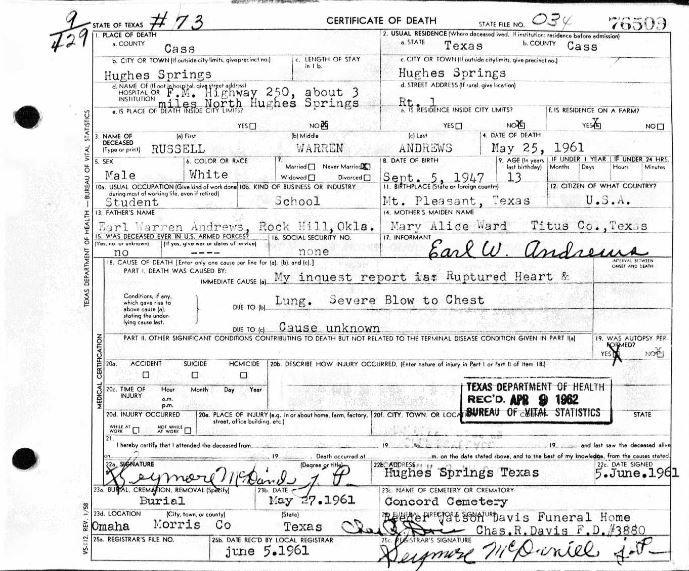 9/429
STATE OF TEXAS #73
CERTIFICATE OF DEATH
STATE FILE NO. 034
76509
TEXAS DEPARTMENT OF HEALTH — BUREAU OF VITAL STATISTICS
1. PLACE OF DEATH
a. COUNTY
Cass
2. USUAL RESIDENCE (Where deceased lived. If institution: residence before admission)
a. STATE Texas b. COUNTY Cass
b. CITY OR TOWN (If outside city limits, give precinct no.)
Hughes Springs
c. LENGTH OF STAY in 1 b.
c. CITY OR TOWN (If outside city limits, give precinct no.)
Hughes Springs
d. NAME OF (If not in hospital, give street address)
HOSPITAL OR INSTITUTION
F.M. Highway 250, about 3
miles North Hughes Springs
d. STREET ADDRESS (If rural, give location)
Rt. 1
e. IS PLACE OF DEATH INSIDE CITY LIMITS?
YES NO X
e. IS RESIDENCE INSIDE CITY LIMITS?
YES NO X
f. IS RESIDENCE ON A FARM?
YES X NO
3. NAME OF DECEASED (Type or print)
(a) First (b) Middle (c) Last
RUSSELL WARREN ANDREWS
4. DATE OF DEATH
May 25, 1961
5. SEX
Male
6. COLOR OR RACE
White
7. Married Never Married X
Widowed Divorced
8. DATE OF BIRTH
Sept. 5, 1947
9. AGE (In years last birthday)
13
IF UNDER 1 YEAR
Months Days
IF UNDER 24 HRS.
Hours Minutes
10a. USUAL OCCUPATION (Give kind of work done during most of working life, even if retired)
Student
10b. KIND OF BUSINESS OR INDUSTRY
School
11. BIRTHPLACE (State or foreign country)
Mt. Pleasant, Texas
12. CITIZEN OF WHAT COUNTRY?
U.S.A.
13. FATHER'S NAME
Earl Warren Andrews, Rock Hill, Okla.
14. MOTHER'S MAIDEN NAME
Mary Alice Ward Titus Co., Texas
15. WAS DECEASED EVER IN U.S. ARMED FORCES?
(Yes, no, or unknown) (If yes, give war or dates of service)
no ----
16. SOCIAL SECURITY NO.
none
17. INFORMANT
Earl W. Andrews
MEDICAL CERTIFICATION
18. CAUSE OF DEATH [Enter only one cause per line for (a), (b), and (c).]
INTERVAL BETWEEN ONSET AND DEATH
PART I. DEATH WAS CAUSED BY:
IMMEDIATE CAUSE (a) My inquest report is: Ruptured Heart &
Conditions, if any, which gave rise to above cause (a), stating the underlying cause last.
DUE TO (b) Lung. Severe Blow to Chest
DUE TO (c) Cause unknown
PART II. OTHER SIGNIFICANT CONDITIONS CONTRIBUTING TO DEATH BUT NOT RELATED TO THE TERMINAL DISEASE CONDITION GIVEN IN PART I(a)
19. WAS AUTOPSY PERFORMED?
YES X NO
20a. ACCIDENT SUICIDE HOMICIDE
20b. DESCRIBE HOW INJURY OCCURRED. (Enter nature of injury in Part I or Part II of item 18.)
20c. TIME OF INJURY Hour Month Day Year
a.m.
p.m.
TEXAS DEPARTMENT OF HEALTH
REC'D. APR 9 1962
BUREAU OF VITAL STATISTICS
20d. INJURY OCCURRED
WHILE AT WORK NOT WHILE AT WORK
20e. PLACE OF INJURY (e.g. in or about home, farm, factory, street, office building, etc.)
20f. CITY, TOWN, OR LOCATION
STATE
21. I hereby certify that I attended the deceased from 19 19 and last saw the deceased alive
on 19 Death occurred at m. on the date stated above, and to the best of my knowledge, from the causes stated.
22a. SIGNATURE (Degree or title)
Seymore McDaniel J P
22b. ADDRESS
Hughes Springs Texas
22c. DATE SIGNED
5.June.1961
23a. BURIAL, CREMATION, REMOVAL (Specify)
Burial
23b. DATE
May 27.1961
23c. NAME OF CEMETERY OR CREMATORY
Concord Cemetery
23d. LOCATION (City, town, or county) (State)
Omaha Morris Co Texas
24. FUNERAL DIRECTOR'S SIGNATURE
Reeder Watson Davis Funeral Home
Chas.R.Davis F.D.#3880
25a. REGISTRAR'S FILE NO.
25b. DATE REC'D BY LOCAL REGISTRAR
june 5.1961
25c. REGISTRAR'S SIGNATURE
Seymore McDaniel J.P.
VS-112 REV. 1/58